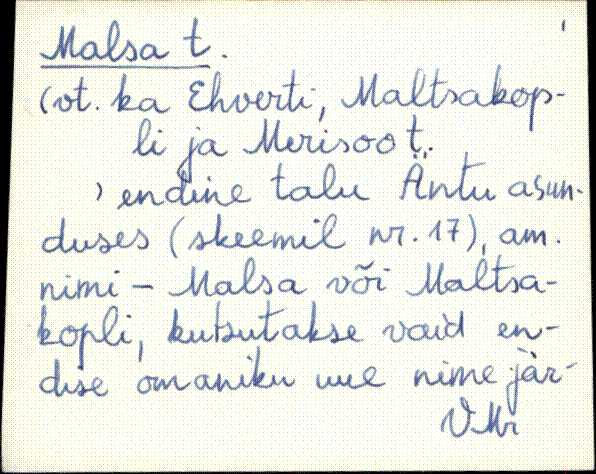 Malsa t.
(vt. ka Ehverti, Maltsakop-
li ja Merisoo t.
, endine talu Äntu asun-
duses (skeemil nr. 17), am.
nimi – Malsa või Maltsa-
kopli, kutsutakse vaid en-
dise omaniku uue nime jär-
VMr